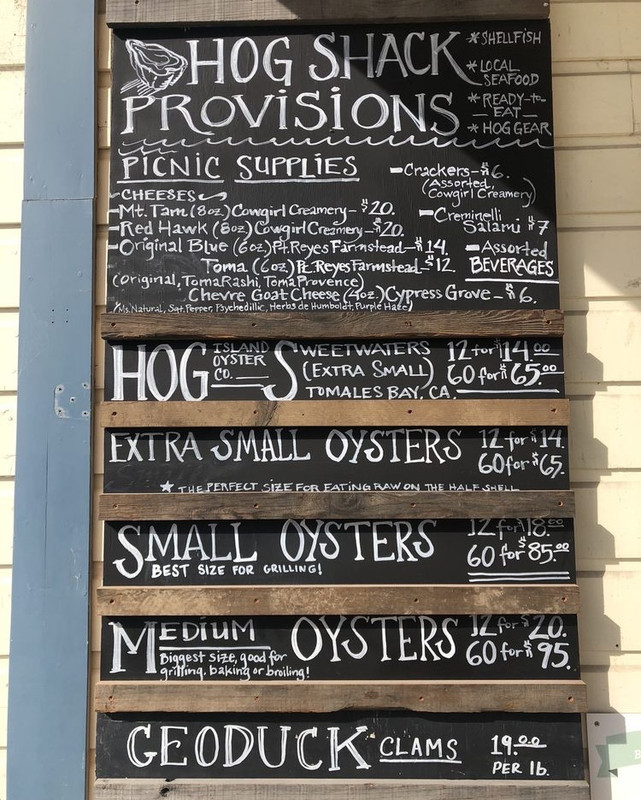 HOG SHACK
PROVISIONS
* SHELLFISH
* LOCAL
SEAFOOD
* READY-to-
— EAT —
* HOG GEAR
PICNIC SUPPLIES
CHEESES
-Mt. Tam (8oz) Cowgirl Creamery - $20.
-Red Hawk (8oz) Cowgirl Creamery - $20.
-Original Blue (6oz) Pt. Reyes Farmstead - $14.
Toma (6oz) Pt. Reyes Farmstead - $12.
(Original, TomaRashi, Toma Provence)
Chevre Goat Cheese (4oz.) Cypress Grove - $6.
(Ms. Natural, Sgt. Pepper, Psychedillic, Herbs de Humboldt, Purple Haze)
-Crackers - $6.
(Assorted,
Cowgirl Creamery)
-Creminelli
Salami $7
-Assorted
BEVERAGES
HOG ISLAND
OYSTER
CO.
SWEETWATERS
(EXTRA SMALL)
TOMALES BAY, CA.
12 for $14.00
60 for $65.00
EXTRA SMALL OYSTERS
12 for $14.
60 for $65.
★ THE PERFECT SIZE FOR EATING RAW ON THE HALF SHELL
SMALL OYSTERS
12 for $18.00
60 for $85.00
BEST SIZE FOR GRILLING!
MEDIUM OYSTERS
12 for $20.
60 for $95.
Biggest size, good for
grilling, baking or broiling!
GEODUCK CLAMS
19.00
PER lb.